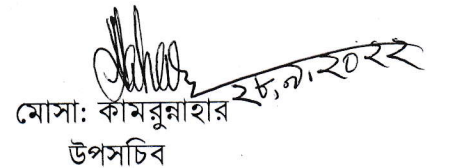 ২৮.৭.২০২২
মোসা: কামরুন্নাহার
উপসচিব